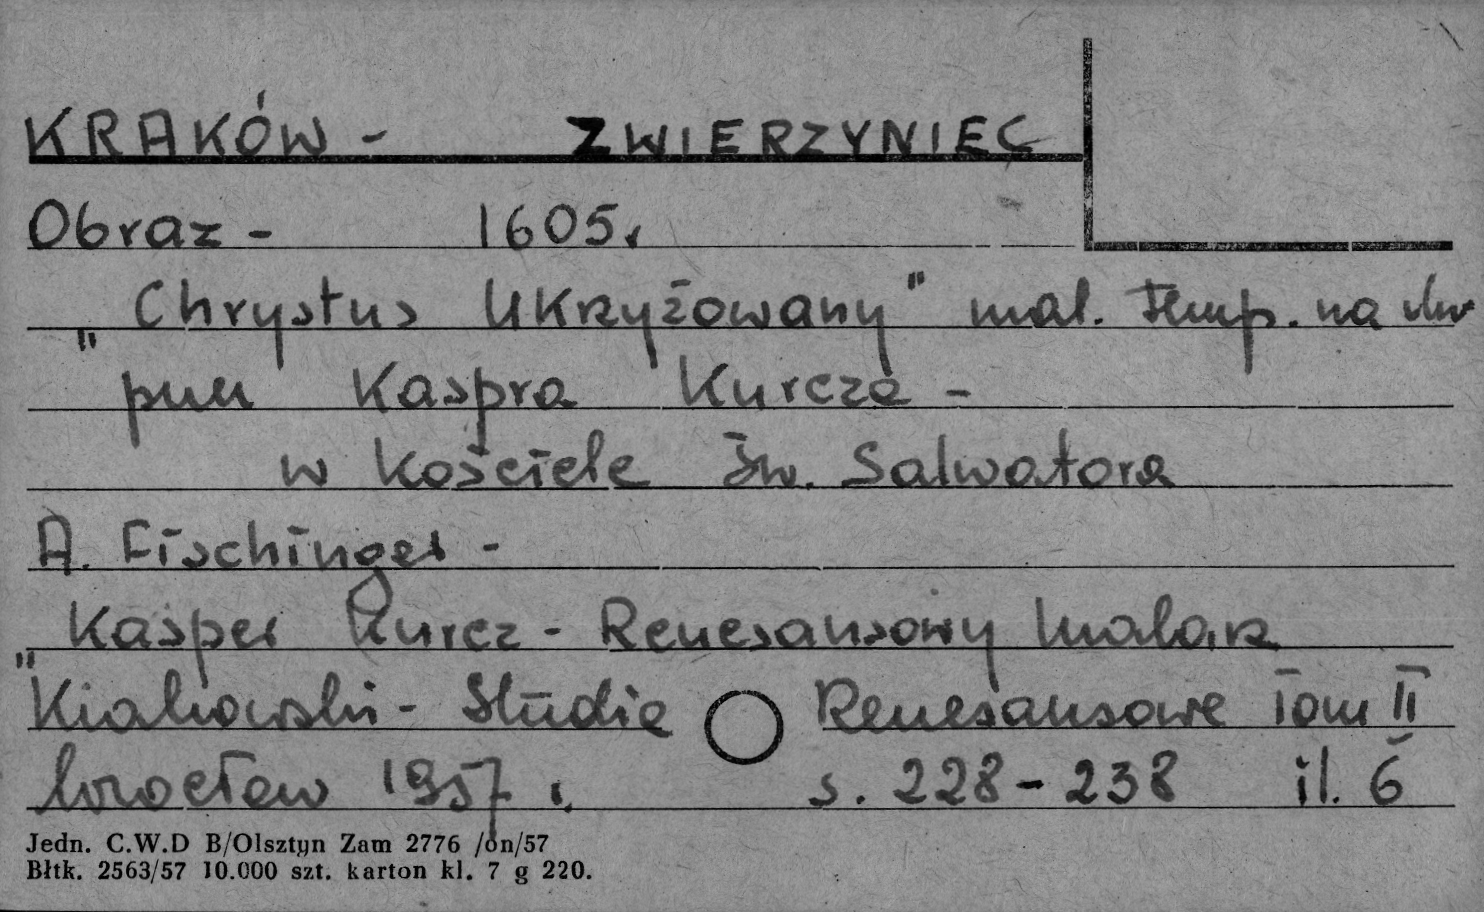 KRAKÓW - ZWIERZYNIEC
Obraz - 1605r
„Chrystus Ukrzyżowany" mal. temp. na drw
pna Kaspra Kurcza -
w kościele św. Salwatora
A. Fischinger -
Kasper Kurcz - Renesansowy malarz
"Krakowski - Studia Renesansowe Tom II
Wrocław 1957 r. s. 228-238 il. 6
Jedn. C.W.D B/Olsztyn Zam 2776 /ón/57
Błtk. 2563/57 10.000 szt. karton kl. 7 g 220.